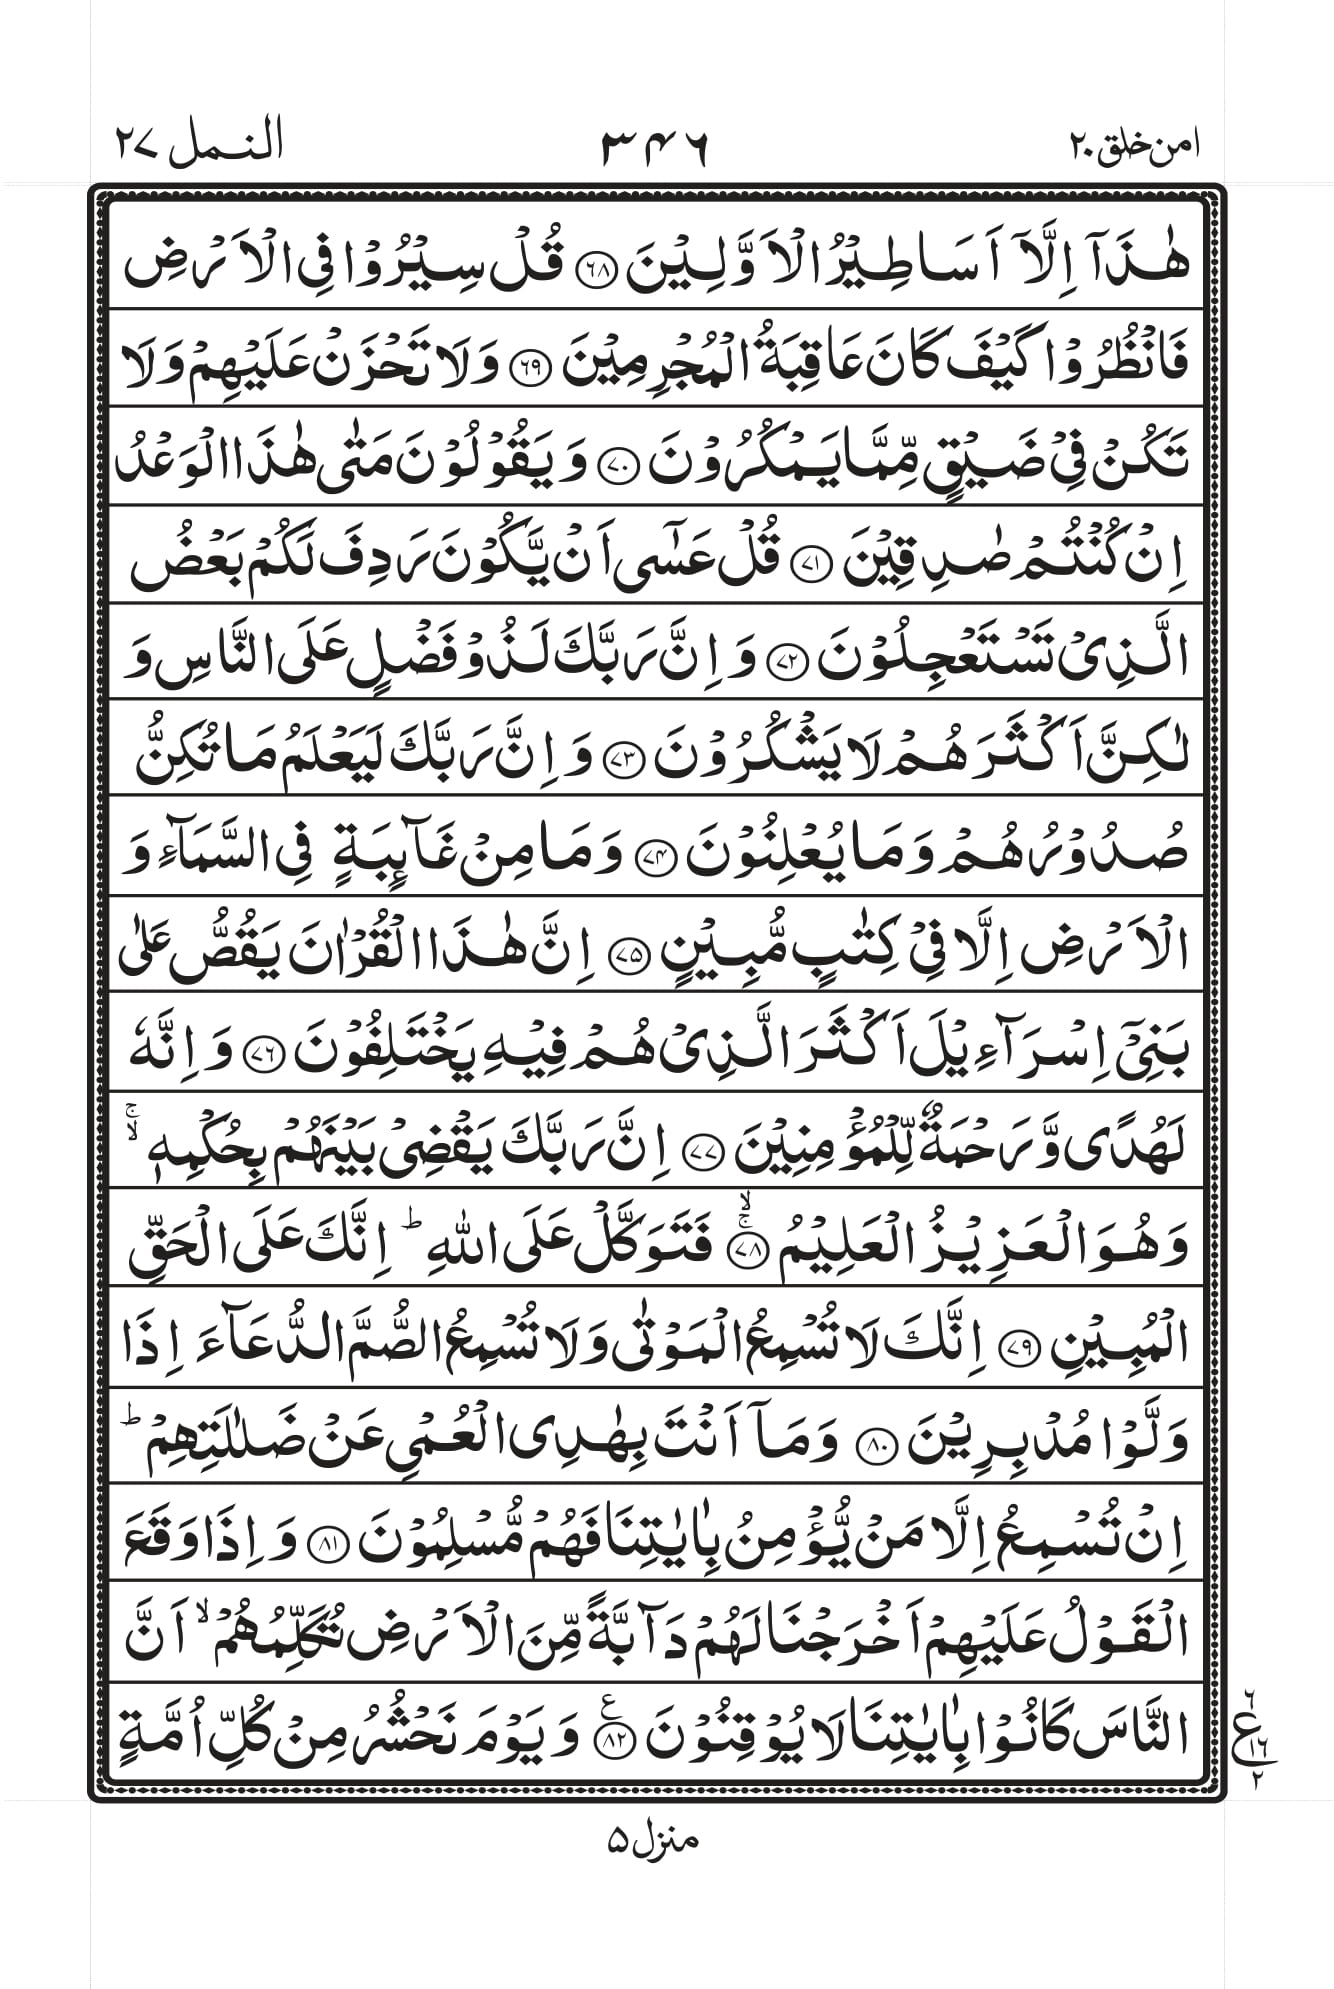 امن خلق ۲۰
۳۴۶
النمل ۲۷
هٰذَاۤ اِلَّاۤ اَسَاطِيْرُ الْاَوَّلِيْنَ ۶۸ قُلْ سِيْرُوْا فِى الْاَرْضِ
فَانْظُرُوْا كَيْفَ كَانَ عَاقِبَةُ الْمُجْرِمِيْنَ ۶۹ وَلَا تَحْزَنْ عَلَيْهِمْ وَلَا
تَكُنْ فِىْ ضَيْقٍ مِّمَّا يَمْكُرُوْنَ ۷۰ وَيَقُوْلُوْنَ مَتٰى هٰذَا الْوَعْدُ
اِنْ كُنْتُمْ صٰدِقِيْنَ ۷۱ قُلْ عَسٰۤى اَنْ يَّكُوْنَ رَدِفَ لَكُمْ بَعْضُ
الَّذِىْ تَسْتَعْجِلُوْنَ ۷۲ وَاِنَّ رَبَّكَ لَذُوْ فَضْلٍ عَلَى النَّاسِ وَ
لٰكِنَّ اَكْثَرَهُمْ لَا يَشْكُرُوْنَ ۷۳ وَاِنَّ رَبَّكَ لَيَعْلَمُ مَا تُكِنُّ
صُدُوْرُهُمْ وَمَا يُعْلِنُوْنَ ۷۴ وَمَا مِنْ غَآئِبَةٍ فِى السَّمَآءِ وَ
الْاَرْضِ اِلَّا فِىْ كِتٰبٍ مُّبِيْنٍ ۷۵ اِنَّ هٰذَا الْقُرْاٰنَ يَقُصُّ عَلٰى
بَنِىْۤ اِسْرَآءِيْلَ اَكْثَرَ الَّذِىْ هُمْ فِيْهِ يَخْتَلِفُوْنَ ۷۶ وَاِنَّهٗ
لَهُدًى وَّرَحْمَةٌ لِّلْمُؤْمِنِيْنَ ۷۷ اِنَّ رَبَّكَ يَقْضِىْ بَيْنَهُمْ بِحُكْمِهٖ ۚۙ
وَهُوَ الْعَزِيْزُ الْعَلِيْمُ ۷۸ ۚۙ فَتَوَكَّلْ عَلَى اللّٰهِ ؕ اِنَّكَ عَلَى الْحَقِّ
الْمُبِيْنِ ۷۹ اِنَّكَ لَا تُسْمِعُ الْمَوْتٰى وَلَا تُسْمِعُ الصُّمَّ الدُّعَآءَ اِذَا
وَلَّوْا مُدْبِرِيْنَ ۸۰ وَمَاۤ اَنْتَ بِهٰدِى الْعُمْىِ عَنْ ضَلٰلَتِهِمْ ؕ
اِنْ تُسْمِعُ اِلَّا مَنْ يُّؤْمِنُ بِاٰيٰتِنَا فَهُمْ مُّسْلِمُوْنَ ۸۱ وَاِذَا وَقَعَ
الْقَوْلُ عَلَيْهِمْ اَخْرَجْنَا لَهُمْ دَآبَّةً مِّنَ الْاَرْضِ تُكَلِّمُهُمْ ۙ اَنَّ
النَّاسَ كَانُوْا بِاٰيٰتِنَا لَا يُوْقِنُوْنَ ۸۲ ع وَيَوْمَ نَحْشُرُ مِنْ كُلِّ اُمَّةٍ
۶
ع ۱۶
۲
منزل ۵